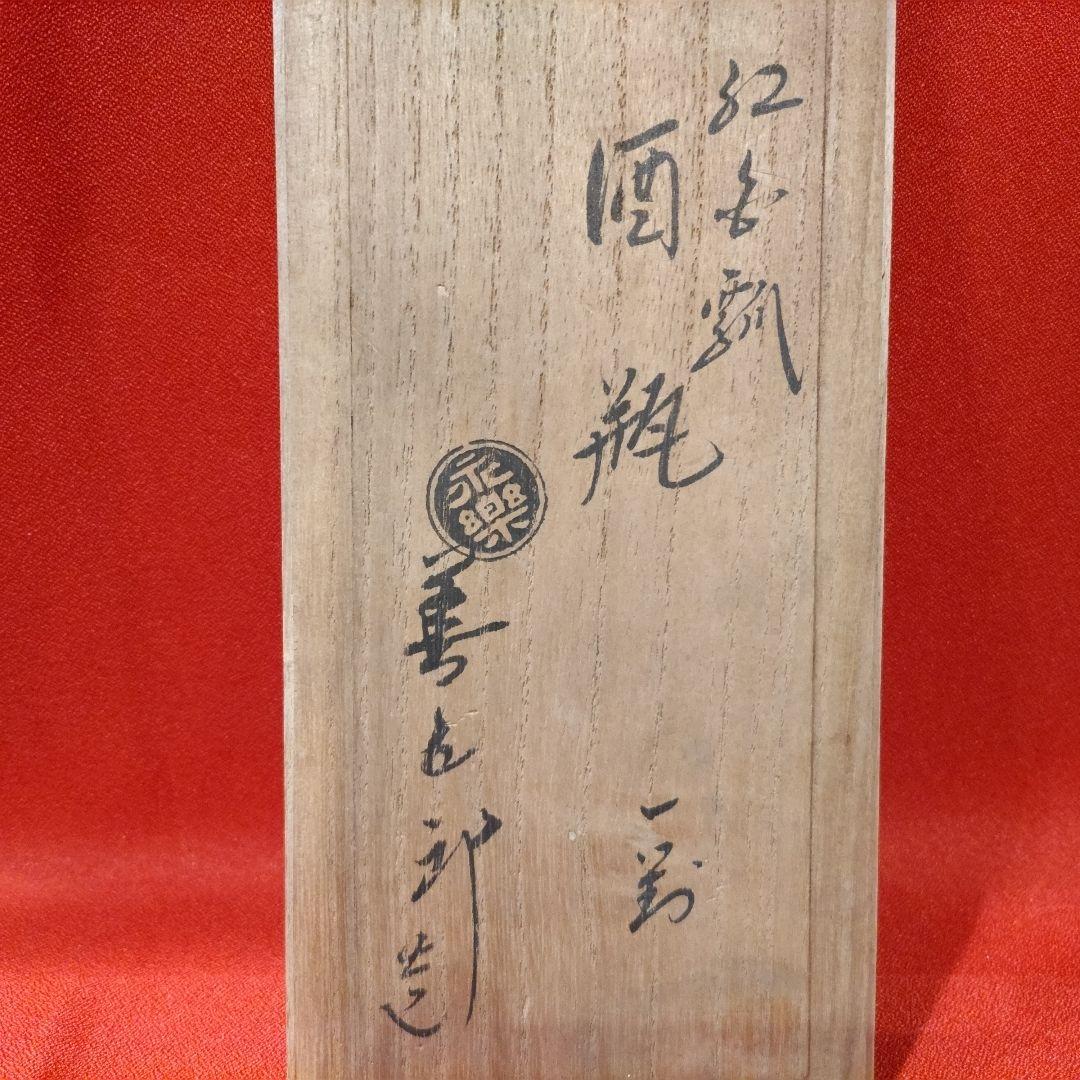 紅白瓢
酒瓶
一對
永樂
善五郎造